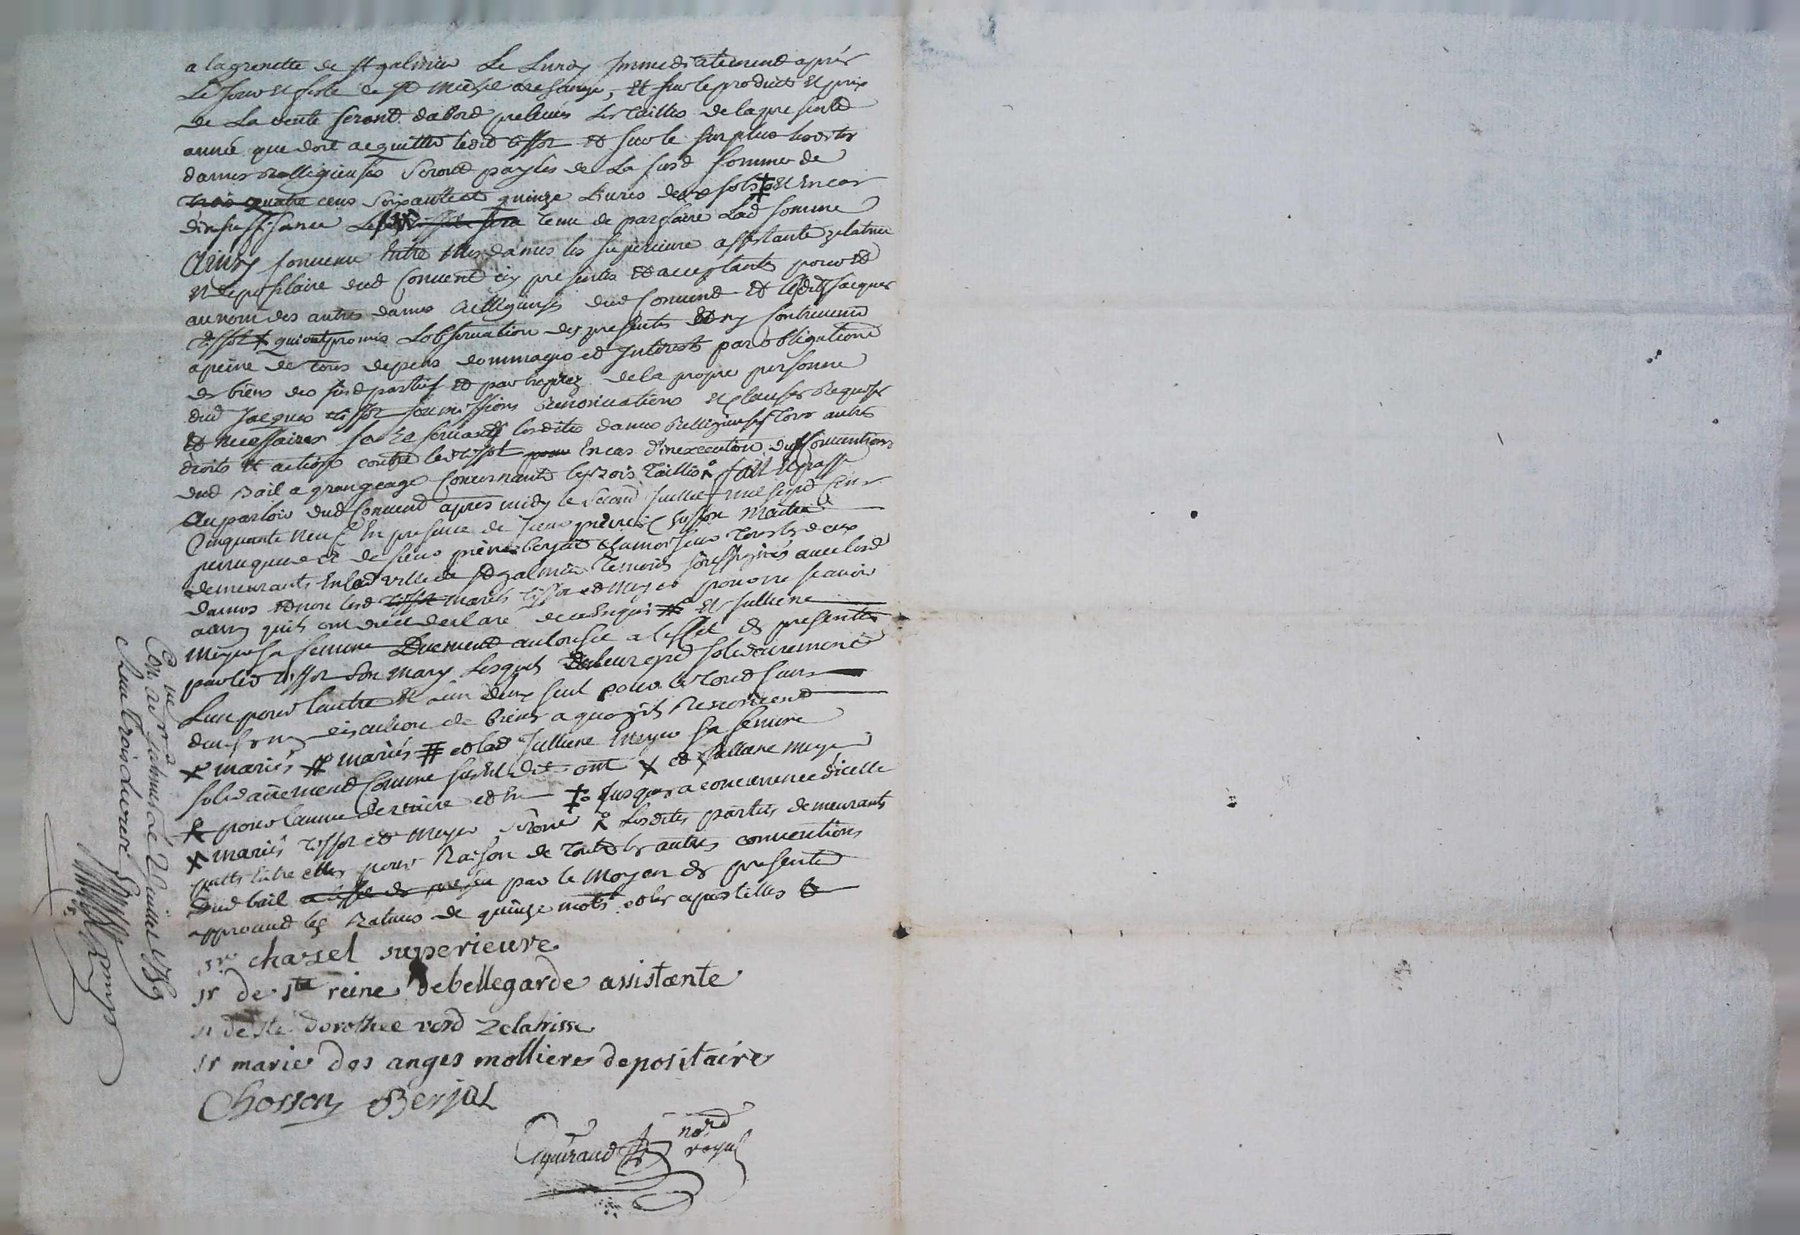 a la grenette de st galmier Le Lundy Immediatement après
Le Jour et feste de st Michel archange, et sur le produit et prix
de La vente seront dabord prelevés les tailles de la presente
année que doit acquitter ledit tissot et sur le surplus lesdites
dames Relligieuses seront payées de La susd somme de
trois quatre cens soixante et quinze Livres deux sols et En cas
dinsuffisance tenu de parfaire Lad somme
Ainsy convenu Entre Mesdames les superieure assistante zelatrice
et depositaire dud Couvent icy presentes et acceptantes pour et
au nom des autres dames Relligieuses dud Couvent et ledit Jacques
tissot qui ont promis Lobservation des presentes et ny contrevenir
a peine de tous depens dommages et Interests par obligation
de biens des susd parties et par exprez de la propre personne
dud Jacques tissot soumissions Renonciations et clauses Requises
et necessaires sans lesdites dames Relligieuses tous autres
droits et actions contre led tissot pour En cas d'inexecution des Conventions
dud Bail a grangeage Concernant les tailles fait et passé
au parloir dud Couvent apres midy le second juillet mil sept cens
Cinquante neuf En presence de sieur pierre Chosson Maitre
perruquier et de sieur pierre berjat tous les deux
demeurants En lad ville de st galmier temoins soussignés avec lesd
dames et non lesd tissot mariés tissot et Meyer pour ne scavoir
ainsy quils ont declaré de ce Enquis et Julliene
Meyer sa femme Duement authorisée a leffet des presentes
par led tissot son mary Lesquels de leur gré solidairement
Lun pour lautre et un deux seul pour le tout sans
division ny discution de biens a quoy ils Renoncent
mariés mariés et lad Julliene Meyer sa femme
solidairement Comme sus Est dit ont et Julliene Meyer
pour lannée derniere et En jusques a concurrence dicelle
mariés tissot et Meyer seront Lesdites parties demeurants
quittes Entre elles pour Raison de toutes les autres conventions
dud bail par le Moyen des presentes
approuvé les Ratures de quinze mots et les apostilles
sr chazel superieure
sr de ste reine debellegarde assistante
sr de ste dorothee verd zelatrisse
sr marie des anges mollieres depositaire
Chosson Berjat
Eguiraud nord
royal
Con. a st galmier le 2 juillet 1759